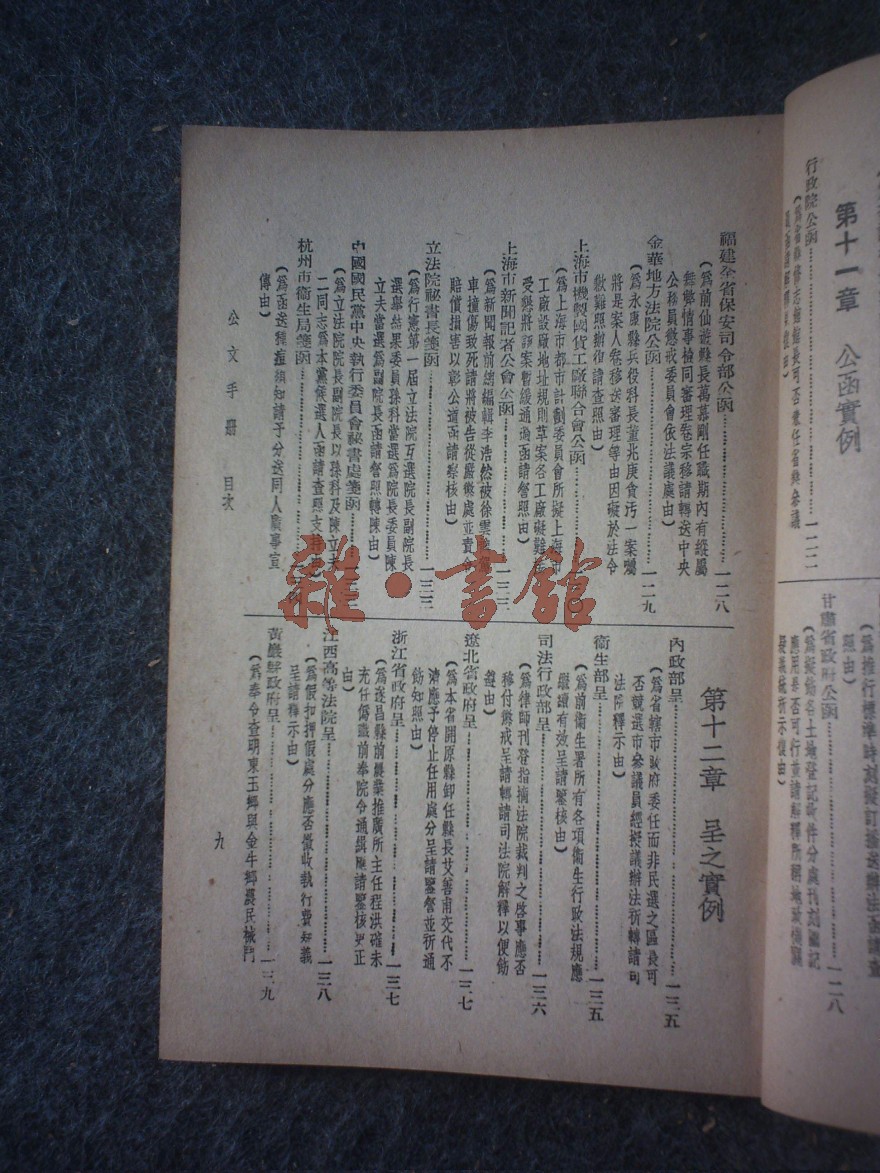 第十一章 公函實例
行政院公函
一二二
甘肅省政府公函
一二八
福建全省保安司令部公函
一二八
(爲前仙遊縣長萬慕剛任職期內有縱屬
無弊情事檢同審理卷宗移請轉送中央
公務員懲戒委員會依法議處由)
金華地方法院公函
一二九
(爲永康縣兵役科長董兆庚貪汚一案囑
將是案人卷移送審理等由因礙於法令
歉難照辦復請查照由)
上海市機製國貨工廠聯合會公函
(爲上海市都市計劃委員會所擬上海市
工廠設廠地址規則草案各工廠礙難
受懸將訴案暫緩通過函請詧照由)
上海市新聞記者公會公函
(爲新聞報前總編輯李浩然被徐雲
車撞傷致死請將被告從嚴懲處並責令
賠償損害以彰公道函請察核由)
立法院祕書長箋函
一三三
(爲行憲第一屆立法院互選院長副院長
選舉結果委員孫科當選爲院長委員陳
立夫當選爲副院長函請詧照轉陳由)
中國國民黨中央執行委員會祕書處箋函
(爲立法院院長副院長以孫科及陳立夫
二同志爲本黨候選人函請查照支持由)
杭州市衞生局箋函
(爲函送種痘須知請予分送同人廣事宣
傳由)
第十二章 呈之實例
內政部呈
一三五
(爲省轄市政府委任而非民選之區長可
否競選市參議員經擬議辦法祈轉請司
法院釋示由)
衞生部呈
一三五
(爲前衞生署所有各項衞生行政法規應
繼續有效呈請鑒核由)
司法行政部呈
一三六
(爲律師刊登指摘法院裁判之啓事應否
移付懲戒呈請轉請司法院解釋以便飭
遵由)
遼北省政府呈
一三七
(爲本省開原縣卸任縣長艾善甫交代不
清應予停止任用處分呈請鑒詧並祈通
飭知照由)
浙江省政府呈
一三七
(爲遂昌縣前農業推廣所主任程洪確未
充任僞職前奉院令通緝應請鑒核更正
由)
江西高等法院呈
一三八
(爲假扣押假處分應否徵收執行費知義
呈請釋示由)
黃巖縣政府呈
一三九
(爲奉令查明東玉鄉與金牛鄉農民械鬥
公文手冊 目次
九
雜·書館